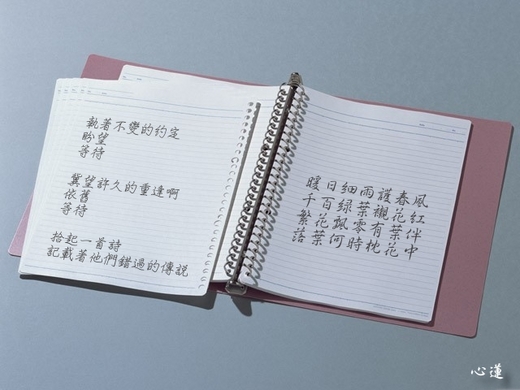 執著不變的約定
盼望
等待
冀望許久的重逢啊
依舊
等待
拾起一首詩
記載著他們錯過的傳說
暖日細雨護春風
千百綠葉襯花紅
繁花飄零有葉伴
語葉何時枕花中
心蓮